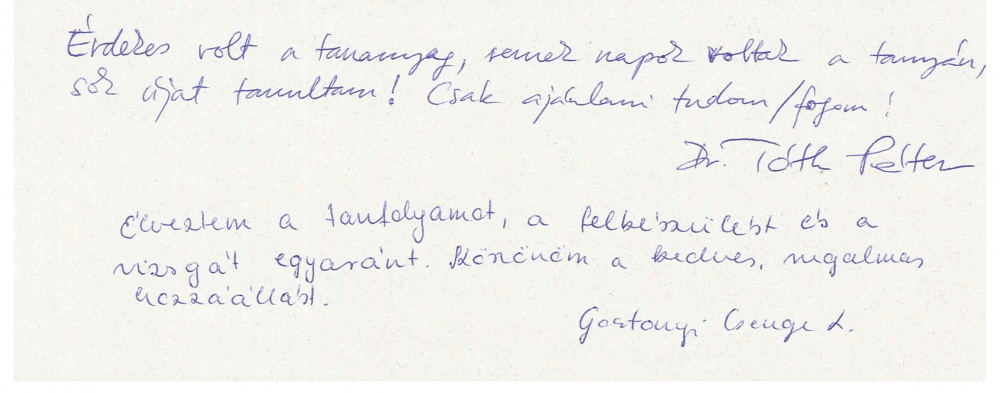 Érdekes volt a tananyag, remek napok voltak a tanyán,
sok újat tanultam! Csak ajánlani tudom/fogom!
Dr. Tóth Péter
Élveztem a tanfolyamot, a felkészülést és a
vizsgát egyaránt. Köszönöm a kedves, rugalmas
hozzáállást.
Gosztonyi Csenge L.